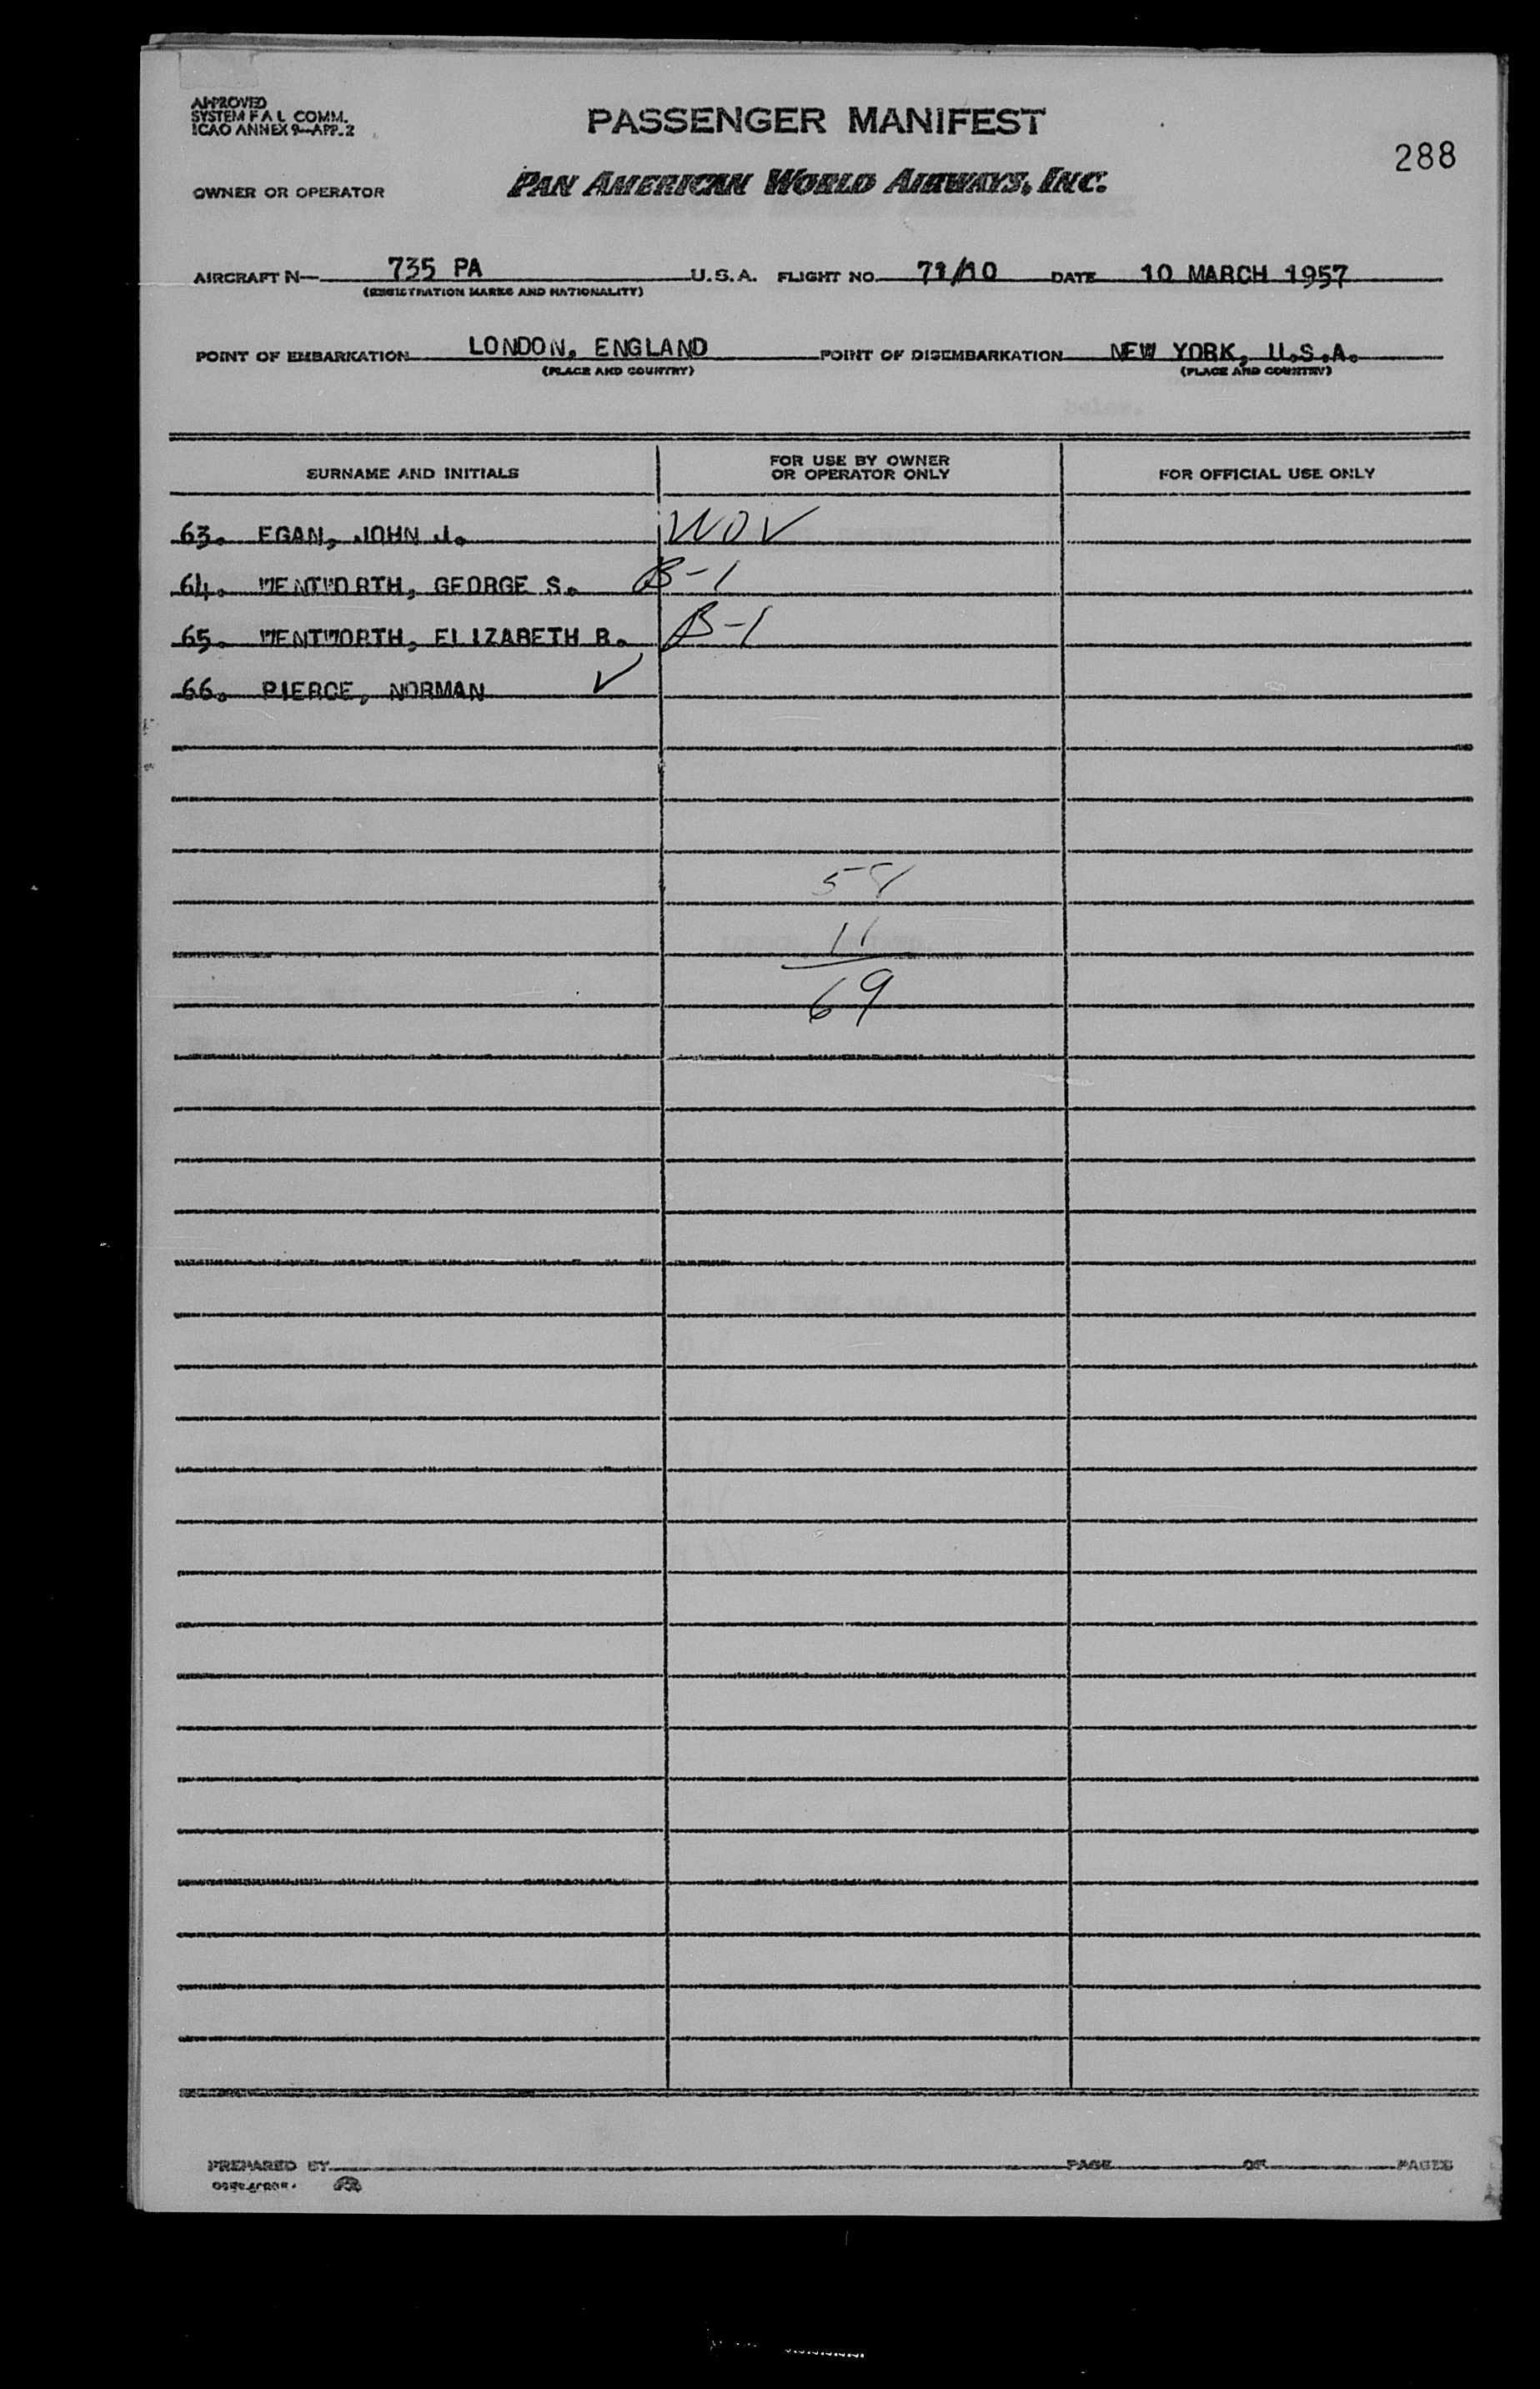 APPROVED
SYSTEM F A L COMM.
ICAO ANNEX 9—APP. 2
PASSENGER MANIFEST
288
OWNER OR OPERATOR PAN AMERICAN WORLD AIRWAYS, INC.
AIRCRAFT N— 735 PA U.S.A. FLIGHT NO. 71/10 DATE 10 MARCH 1957
(REGISTRATION MARKS AND NATIONALITY)
POINT OF EMBARKATION LONDON, ENGLAND POINT OF DISEMBARKATION NEW YORK, U.S.A.
(PLACE AND COUNTRY) (PLACE AND COUNTRY)
below.
SURNAME AND INITIALS FOR USE BY OWNER OR OPERATOR ONLY FOR OFFICIAL USE ONLY
63. EGAN, JOHN J.
64. WENTWORTH, GEORGE S. B-1
65. WENTWORTH, ELIZABETH B. B-1
66. PIERCE, NORMAN ✓
58
11
69
PREPARED BY PAGE OF PAGES